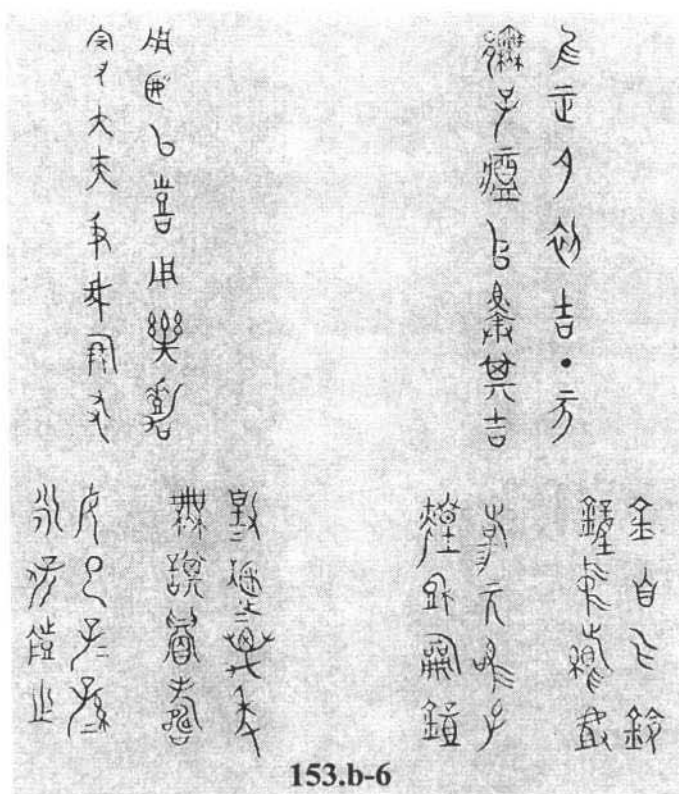 隹正月初吉丁亥
鄦子䀇自擇其吉
金自乍鈴
鐘中翰且
揚元鳴孔
煌穆龢鐘
用匽以喜用樂嘉
賓大夫及我倗友
敦=趩=萬年
無諆眉壽
毋已子=孫=
永保鼓之
153.b-6